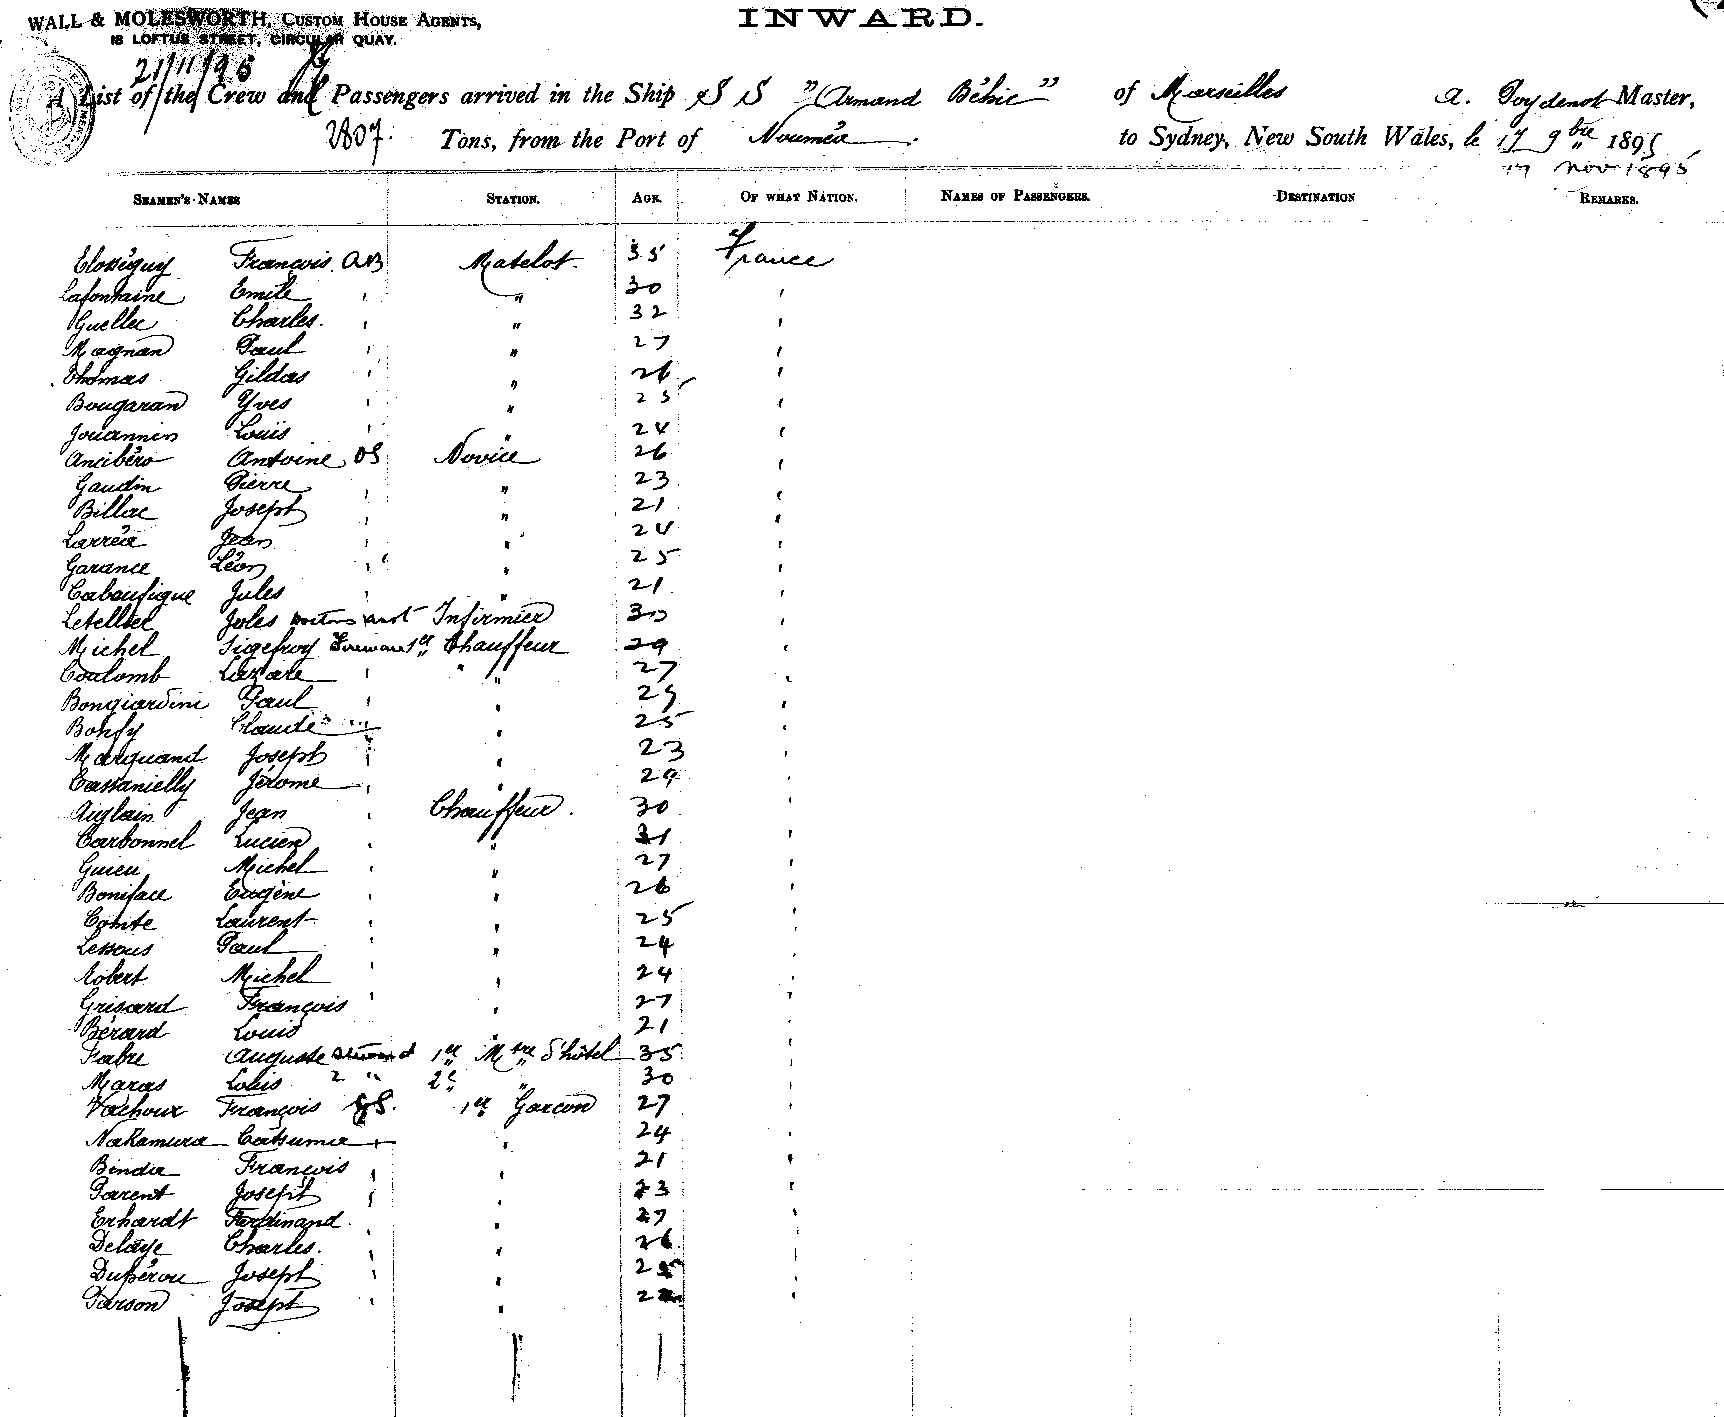 WALL & MOLESWORTH, CUSTOM HOUSE AGENTS,
18 LOFTUS STREET, CIRCULAR QUAY.
INWARD.
21/11/95
A List of the Crew and Passengers arrived in the Ship S S "Armand Béhic" of Marseilles A. Poydenot Master,
2807. Tons, from the Port of Nouméa to Sydney, New South Wales, le 17 9bre 1895
17 Nov 1895
SEAMEN'S NAMES STATION. AGE. OF WHAT NATION. NAMES OF PASSENGERS. DESTINATION REMARKS.
Elosséguy François AB Matelot 35 France
Lafontaine Emile " " 30 "
Guellec Charles. " " 32 "
Magnan Paul " " 27 "
Thomas Gildas " " 26 "
Bougaran Yves " " 25 "
Jouannin Louis " " 24 "
Ancibéro Antoine OS Novice 26 "
Gaudin Pierre " " 23 "
Billac Joseph " " 21 "
Larréa Jean " " 24 "
Garance Léon " " 25 "
Caboufigue Jules " " 21 "
Letellier Jules Infirmier 30 "
Michel Sigefroy Fireman 1er Chauffeur 29 "
Coulomb Lazare " " 27 "
Bongiardini Paul " 29 "
Bonfy Claude " " 25 "
Marquand Joseph " " 23 "
Castanielly Jérome " " 29 "
Aiglain Jean " Chauffeur. 30 "
Carbonnel Lucien " " 31 "
Guieu Michel " " 27 "
Boniface Eugène " " 26 "
Comte Laurent " " 25 "
Lessous Paul " " 24 "
Robert Michel " " 24 "
Grisard François " " 27 "
Bérard Louis " 21 "
Fabre Auguste Steward 1er Mtre d'hôtel 35 "
Maras Louis 2 " 2e " 30 "
Vachour François GS. 1er Garcon 27 "
Nakamura Catsuma " " 24 "
Binda François " " 21 "
Parent Joseph " " 23 "
Erhardt Ferdinand. " " 27 "
Delaye Charles. " " 26 "
Dupérou Joseph " " 25 "
Parson Joseph " " "